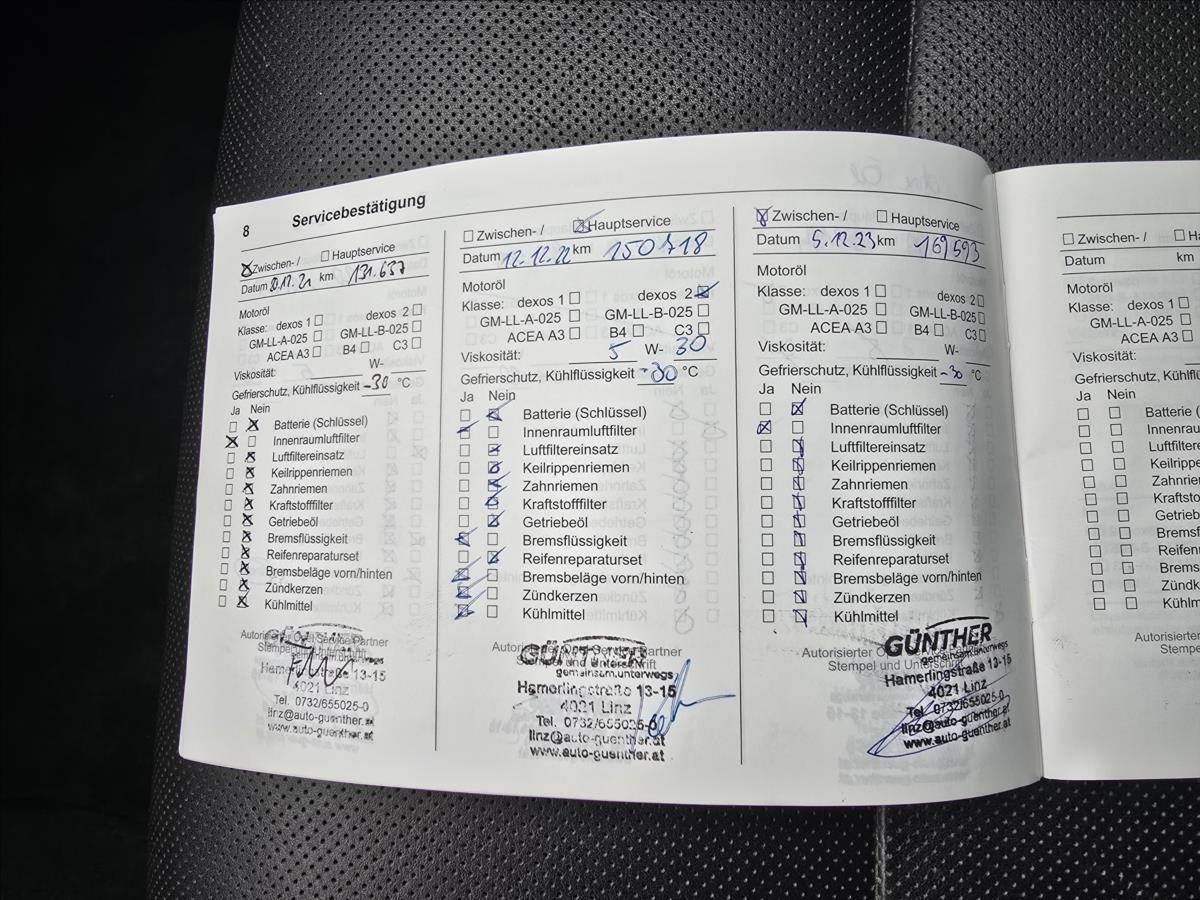 8 Servicebestätigung
Zwischen- / Hauptservice
Datum km 131.637
Motoröl
Klasse: dexos 1 dexos 2
GM-LL-A-025 GM-LL-B-025
ACEA A3 B4 C3
Viskosität: W-
Gefrierschutz, Kühlflüssigkeit -30 °C
Ja Nein
Batterie (Schlüssel)
Innenraumluftfilter
Luftfiltereinsatz
Keilrippenriemen
Zahnriemen
Kraftstofffilter
Getriebeöl
Bremsflüssigkeit
Reifenreparaturset
Bremsbeläge vorn/hinten
Zündkerzen
Kühlmittel
Autorisierter Opel Service Partner
Stempel und Unterschrift
Hamerlingstraße 13-15
4021 Linz
Tel. 0732/655025-0
linz@auto-guenther.at
www.auto-guenther.at
Zwischen- / Hauptservice
Datum 12.12.22 km 150718
Motoröl
Klasse: dexos 1 dexos 2
GM-LL-A-025 GM-LL-B-025
ACEA A3 B4 C3
Viskosität: 5 W- 30
Gefrierschutz, Kühlflüssigkeit -30 °C
Ja Nein
Batterie (Schlüssel)
Innenraumluftfilter
Luftfiltereinsatz
Keilrippenriemen
Zahnriemen
Kraftstofffilter
Getriebeöl
Bremsflüssigkeit
Reifenreparaturset
Bremsbeläge vorn/hinten
Zündkerzen
Kühlmittel
Autorisierter Opel Service Partner
GÜNTHER
Stempel und Unterschrift
gemeinsam.unterwegs
Hamerlingstraße 13-15
4021 Linz
Tel. 0732/655025-0
linz@auto-guenther.at
www.auto-guenther.at
Zwischen- / Hauptservice
Datum 5.12.23 km 169593
Motoröl
Klasse: dexos 1 dexos 2
GM-LL-A-025 GM-LL-B-025
ACEA A3 B4 C3
Viskosität: W-
Gefrierschutz, Kühlflüssigkeit -30 °C
Ja Nein
Batterie (Schlüssel)
Innenraumluftfilter
Luftfiltereinsatz
Keilrippenriemen
Zahnriemen
Kraftstofffilter
Getriebeöl
Bremsflüssigkeit
Reifenreparaturset
Bremsbeläge vorn/hinten
Zündkerzen
Kühlmittel
GÜNTHER
Autorisierter
gemeinsam.unterwegs
Stempel und Unterschrift
Hamerlingstraße 13-15
4021 Linz
Tel. 0732/655025-0
linz@auto-guenther.at
www.auto-guenther.at
Zwischen- / Ha
Datum km
Motoröl
Klasse: dexos 1
GM-LL-A-025
ACEA A3
Viskosität:
Gefrierschutz, Kühlflüs
Ja Nein
Batterie (
Innenraum
Luftfilterei
Keilrippen
Zahnrieme
Kraftstofff
Getriebeö
Bremsflüs
Reifenrep
Bremsbe
Zündkerz
Kühlmit
Autorisierter
Stempel